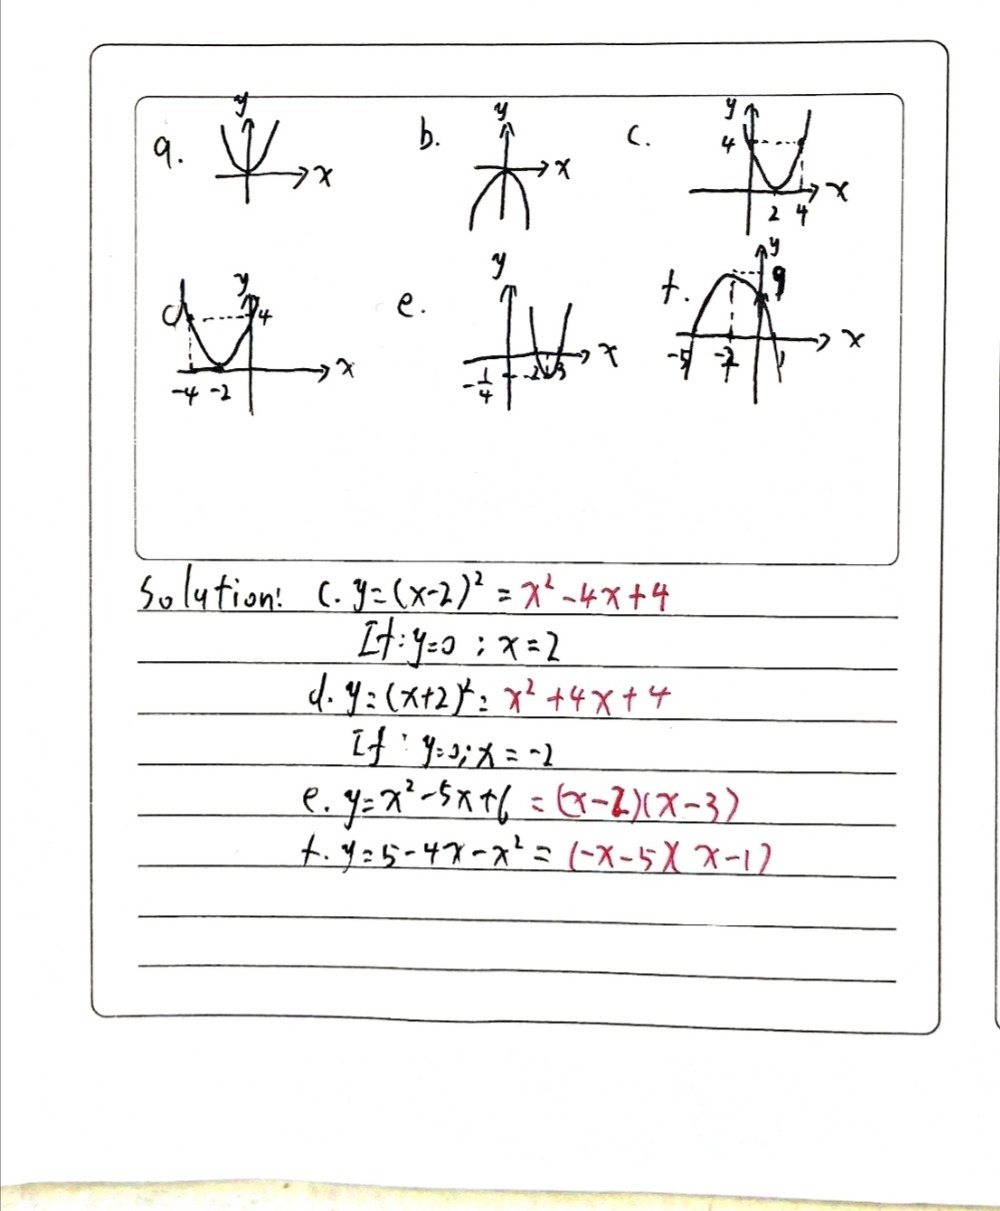 a. y x
b. y x
c. y 4 x 2 4
d. y 4 x -4 -2
e. y x -1/4 2 3
f. y 9 x -5 -2 1
Solution: c. y=(x-2)² = x²-4x+4
If: y=0 ; x=2
d. y=(x+2)²= x²+4x+4
If: y=0; x=-2
e. y=x²-5x+6 = (x-2)(x-3)
f. y=5-4x-x² = (-x-5)(x-1)